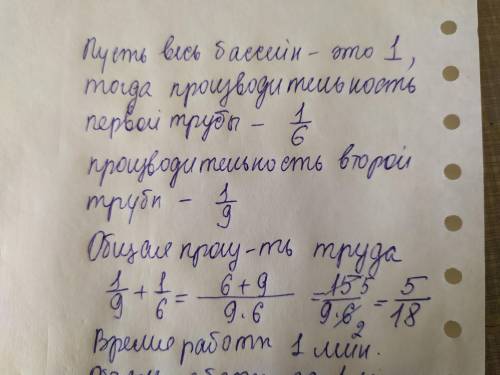 Пусть весь бассейн - это 1,
тогда производительность
первой трубы - 1/6
производительность второй
трубы - 1/9
Общая произ-ть труда
1/9 + 1/6 = (6+9)/(9·6) = 15 5/(9·6 2) = 5/18
Время работы 1 мин.